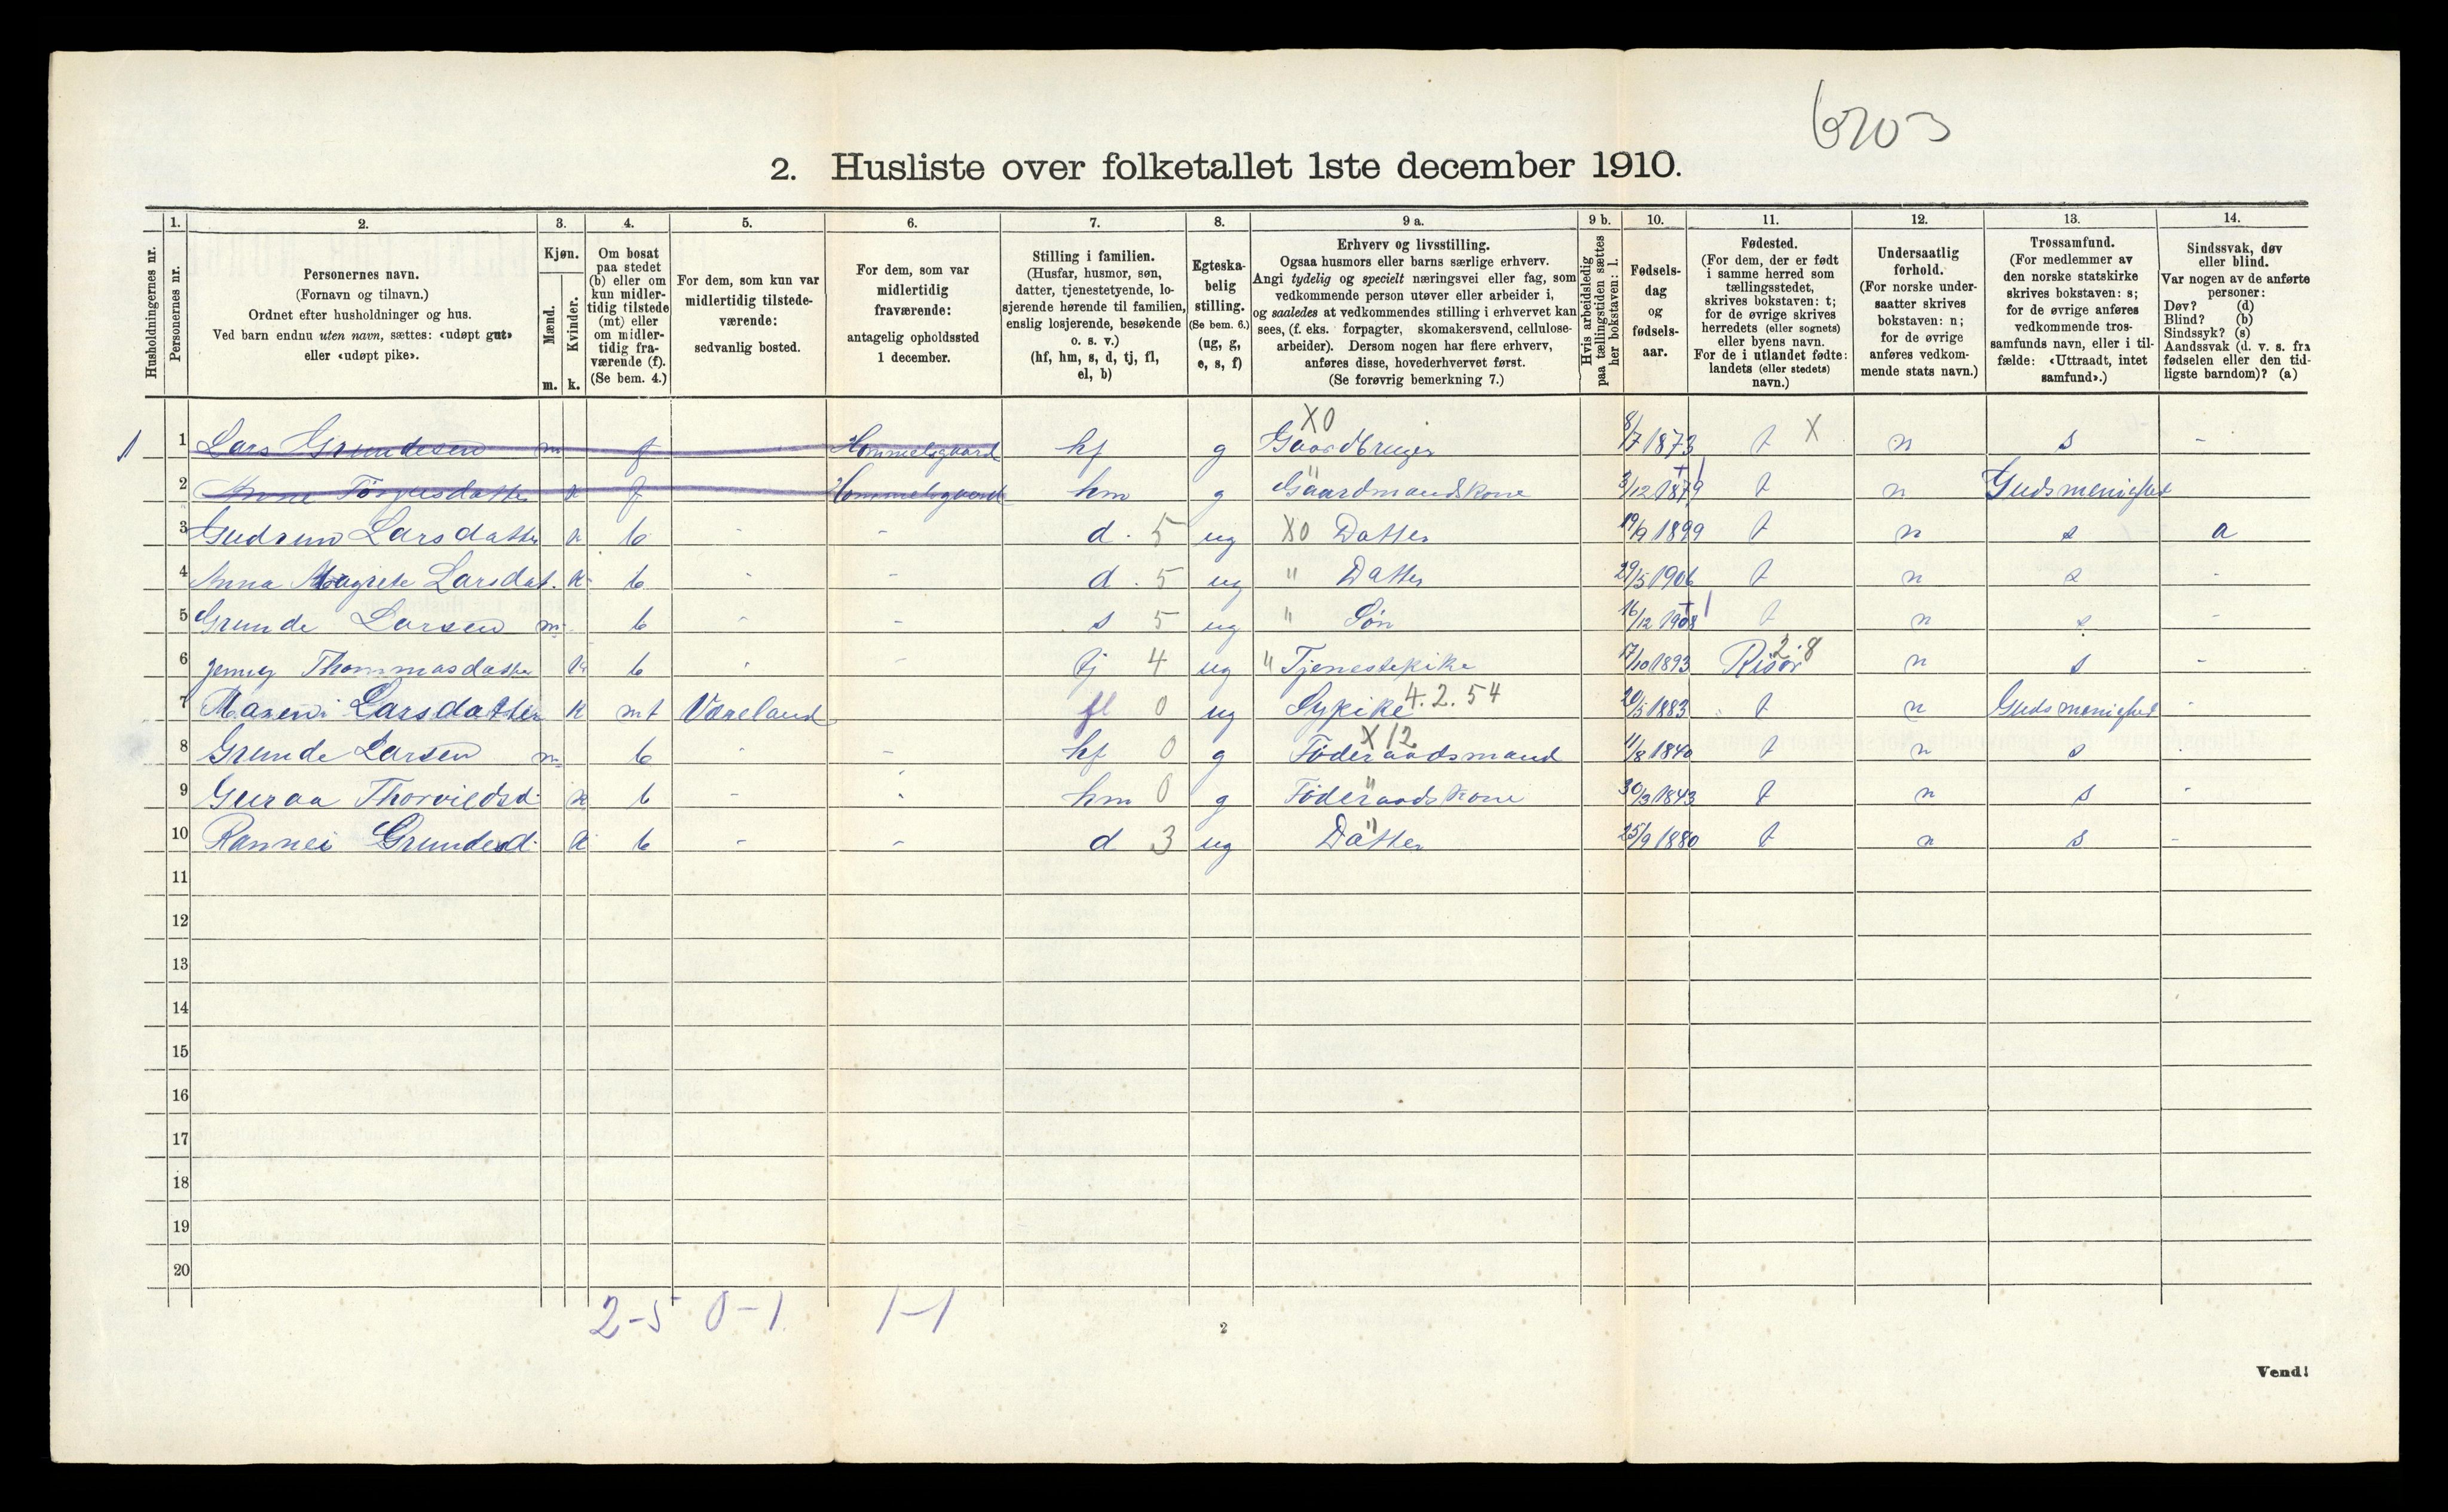 6703
2. Husliste over folketallet 1ste december 1910.
Husholdningernes nr.
1.
Personernes nr.
2.
Personernes navn.
(Fornavn og tilnavn.)
Ordnet efter husholdninger og hus.
Ved barn endnu uten navn, sættes: «udøpt gut»
eller «udøpt pike».
3.
Kjøn.
Mænd.
Kvinder.
m. k.
4.
Om bosat
paa stedet
(b) eller om
kun midler-
tidig tilstede
(mt) eller
om midler-
tidig fra-
værende (f).
(Se bem. 4.)
5.
For dem, som kun var
midlertidig tilstede-
værende:
sedvanlig bosted.
6.
For dem, som var
midlertidig
fraværende:
antagelig opholdssted
1 december.
7.
Stilling i familien.
(Husfar, husmor, søn,
datter, tjenestetyende, lo-
sjerende hørende til familien,
enslig losjerende, besøkende
o. s. v.)
(hf, hm, s, d, tj, fl,
el, b)
8.
Egteska-
belig
stilling.
(Se bem. 6.)
(ug, g,
e, s, f)
9 a.
Erhverv og livsstilling.
Ogsaa husmors eller barns særlige erhverv.
Angi tydelig og specielt næringsvei eller fag, som
vedkommende person utøver eller arbeider i,
og saaledes at vedkommendes stilling i erhvervet kan
sees, (f. eks. forpagter, skomakersvend, cellulose-
arbeider). Dersom nogen har flere erhverv,
anføres disse, hovederhvervet først.
(Se forøvrig bemerkning 7.)
9 b.
Hvis arbeidsledig
paa tællingstiden sættes
her bokstaven: l.
10.
Fødsels-
dag
og
fødsels-
aar.
11.
Fødested.
(For dem, der er født
i samme herred som
tællingsstedet,
skrives bokstaven: t;
for de øvrige skrives
herredets (eller sognets)
eller byens navn.
For de i utlandet fødte:
landets (eller stedets)
navn.)
12.
Undersaatlig
forhold.
(For norske under-
saatter skrives
bokstaven: n;
for de øvrige
anføres vedkom-
mende stats navn.)
13.
Trossamfund.
(For medlemmer av
den norske statskirke
skrives bokstaven: s;
for de øvrige anføres
vedkommende tros-
samfunds navn, eller i til-
fælde: «Uttraadt, intet
samfund».)
14.
Sindssvak, døv
eller blind.
Var nogen av de anførte
personer:
Døv? (d)
Blind? (b)
Sindssyk? (s)
Aandssvak (d. v. s. fra
fødselen eller den tid-
ligste barndom)? (a)
X0
1 1 Lars Grundesen m f Hommelsgaard hf g Gaardbruger 8/7 1873 t X n s -
2 Anne Tørjusdatter k f Hommelsgaard hm g " Gaardmandskone 3/12 1879 t n Gudsmenighed
3 Gudrun Larsdatter k b - - d. 5 ug X0 Datter 19/9 1899 t n s a
4 Anna Magrete Larsdat. k b - - d. 5 ug " Datter 29/5 1906 t n s -
5 Grunde Larsen m b - - s 5 ug " Søn 16/12 1908 t n s -
6 Jenny Thommasdatter k b - - tj 4 ug " Tjenestepike 17/10 1893 Risør 2.8 n s -
7 Mareni Larsdatter k mt Væreland fl 0 ug Sypike 4.2.54 20/5 1883 t n Gudsmenighed -
8 Grunde Larsen m b - - hf 0 g X12 Föderaadsmand 11/8 1840 t n s -
9 Guraa Thorvildsd. k b - - hm 0 g " Föderaadskone 30/3 1843 t n s -
10 Rannei Grundesd. k b - - d 3 ug " Datter 25/9 1880 t n s -
11
12
13
14
15
16
17
18
19
20
2-5 0-1 1-1
2
Vend!